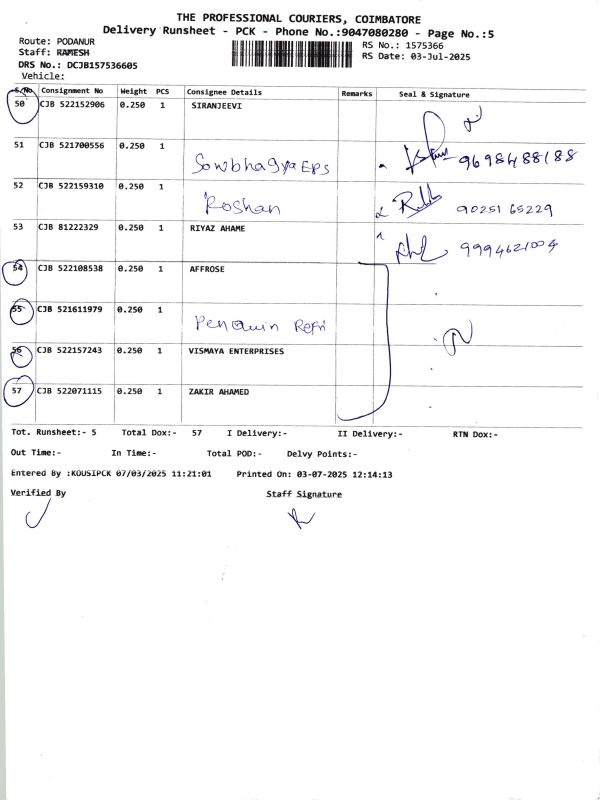 THE PROFESSIONAL COURIERS, COIMBATORE
Delivery Runsheet - PCK - Phone No.:9047080280 - Page No.:5
Route: PODANUR
Staff: RAMESH
DRS No.: DCJB157536605
Vehicle:
RS No.: 1575366
RS Date: 03-Jul-2025
S/No Consignment No Weight PCS Consignee Details Remarks Seal & Signature
50 CJB 522152906 0.250 1 SIRANJEEVI
51 CJB 521700556 0.250 1 Sowbhagya EPS 9698488188
52 CJB 522159310 0.250 1 Roshan 9025165229
53 CJB 81222329 0.250 1 RIYAZ AHAME 9994621004
54 CJB 522108538 0.250 1 AFFROSE
55 CJB 521611979 0.250 1 Penquin Refri
56 CJB 522157243 0.250 1 VISMAYA ENTERPRISES
57 CJB 522071115 0.250 1 ZAKIR AHAMED
Tot. Runsheet:- 5 Total Dox:- 57 I Delivery:- II Delivery:- RTN Dox:-
Out Time:- In Time:- Total POD:- Delvy Points:-
Entered By :KOUSIPCK 07/03/2025 11:21:01 Printed On: 03-07-2025 12:14:13
Verified By Staff Signature